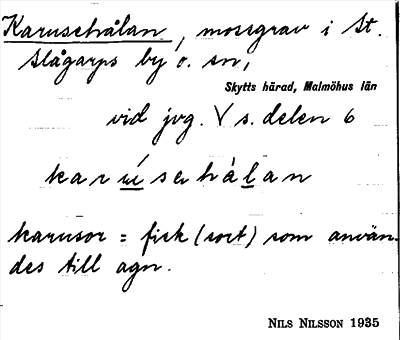 Karusehålan, mossgrav i St.
Slågarps by o. sn,
Skytts härad, Malmöhus län
vid jvg. V s. delen 6
karúsehålan
karusor = fisk (sort) som använ-
des till agn.
NILS NILSSON 1935